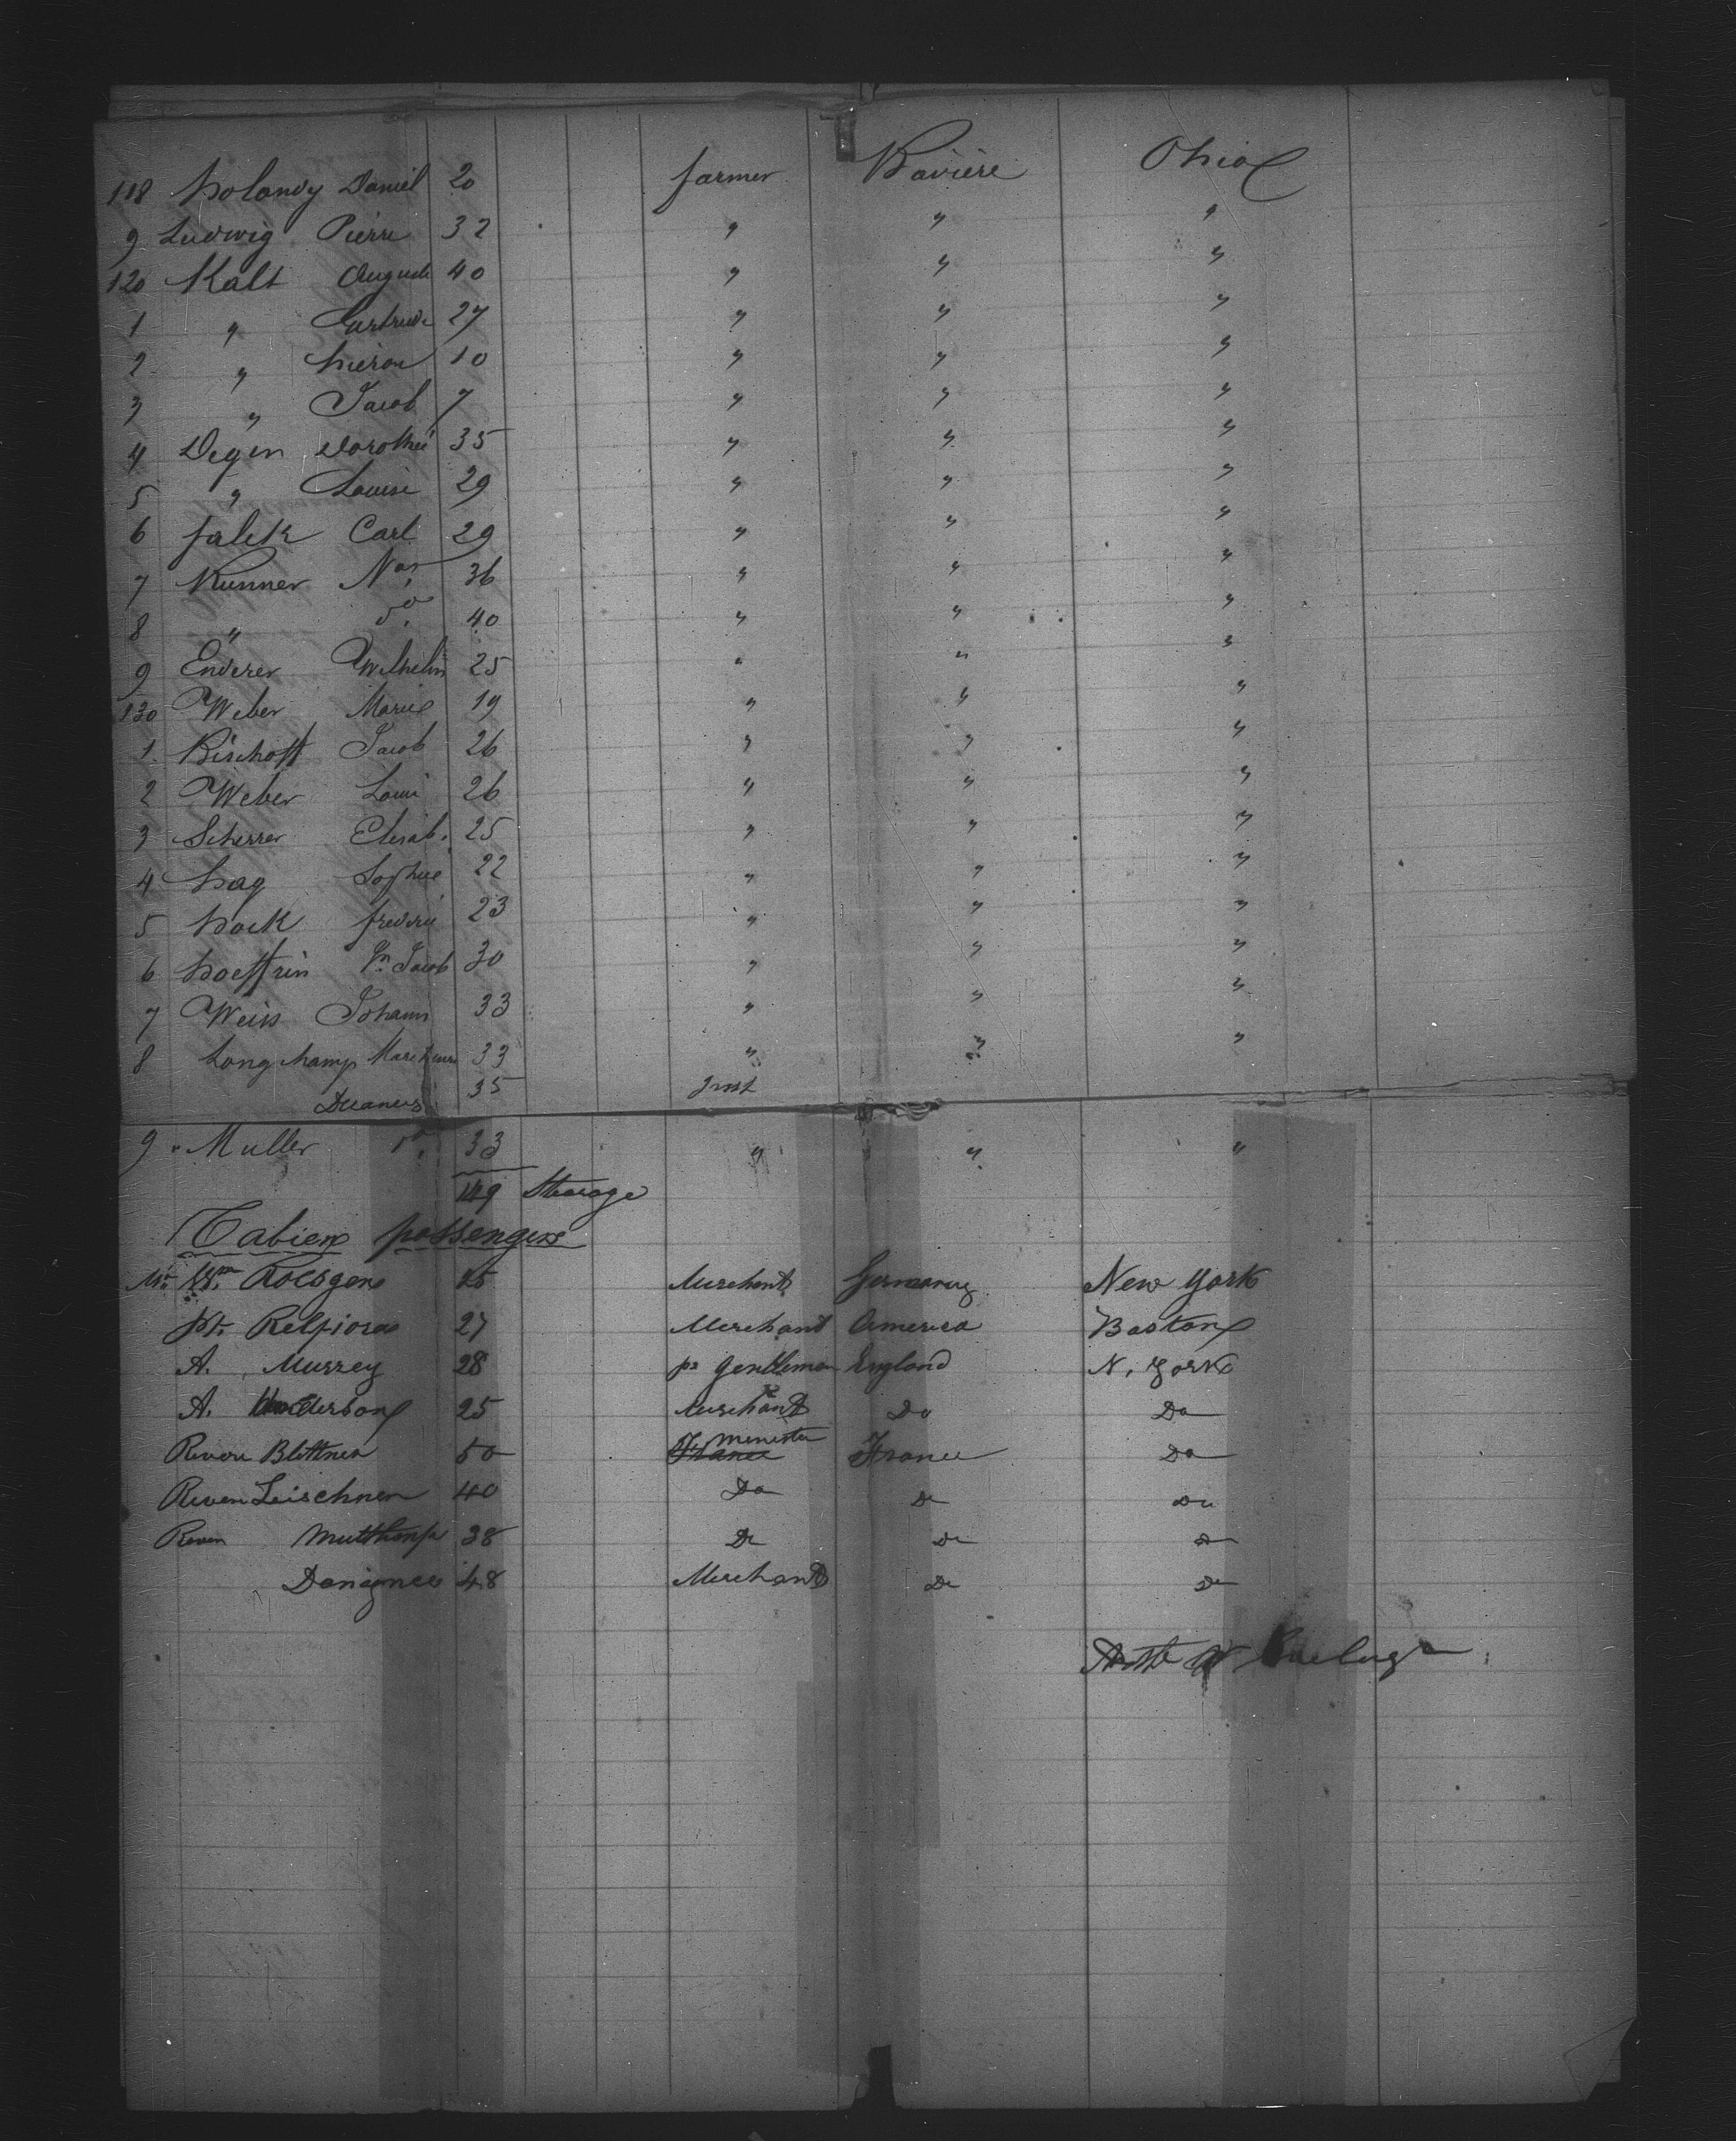 118 Holandy Daniel 20 farmer Bavière Ohio
9 Ludwig Pierre 32 " " "
120 Kalt August 40 " " "
1 " Gertrude 27 " " "
2 " hieron 10 " " "
3 " Jacob 7 " " "
4 Degen Dorothée 35 " " "
5 " Louise 29 " " "
6 falck Carl 29 " " "
7 Kunner Nas. 36 " " "
8 " do. 40 " " "
9 Enderer Wilhelm 25 " " "
130 Weber Marie 19 " " "
1 Bischoff Jacob 26 " " "
2 Weber Louis 26 " " "
3 Scherrer Elisab. 25 " " "
4 hag Sophie 22 " " "
5 hock frederic 23 " " "
6 hoeffrin Jn. Jacob 30 " " "
7 Weiss Johann 33 " " "
8 Longchamp 33 " " "
35
9 Muller do. 33 " " "
149 Stearage
Cabien passengers
Mr. Wm. Roesgen 25 Merchant Germany New York
27 Merchand America Boston
A. Murrey 28 gentleman England N. York
A. Anderson 25 Merchant Do Do
Reven Blettner 50 minister France Do
Reven Leischner 40 Do Do Do
Reven 38 Do Do Do
48 Merchant Do Do